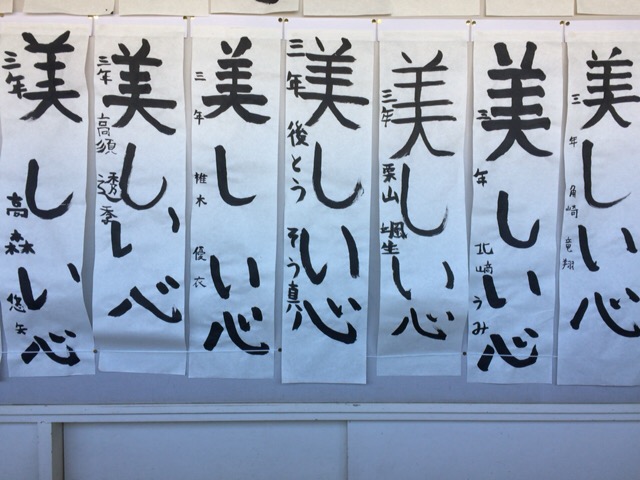 美しい心
三年 角崎 竜翔
美しい心
三年 北崎 うみ
美しい心
三年 栗山 颯生
美しい心
三年 後とう そう真
美しい心
三年 椎木 優衣
美しい心
三年 高須 透季
美しい心
三年 高森 悠矢